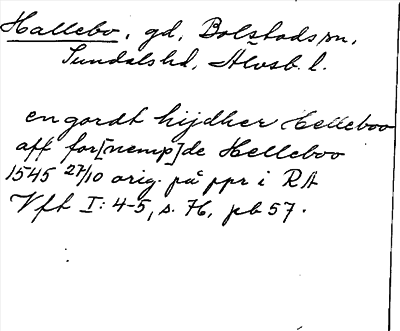 Hallebo, gd, Bolstads sn,
Sundals hd, Älvsb. l.
en gardt hijdher Helleboo
aff for[nemp]de Helleboo
1545 27/10 orig. på ppr i RA
Vft I: 4-5, s. 76, pb 57.